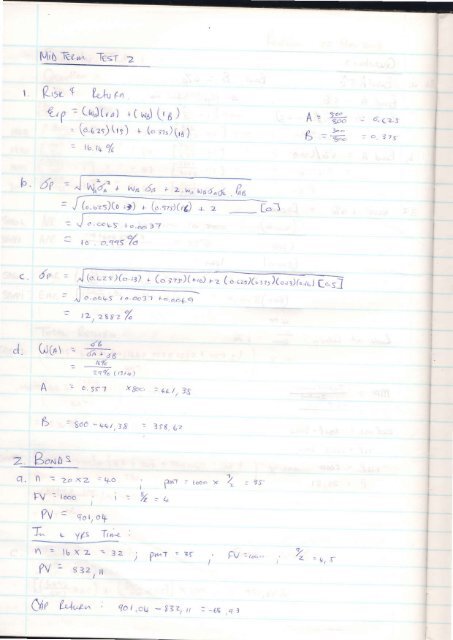 MID TERM TEST 2
1. Risk & Return
Exp = (WA)(rA) + (WB)(rB)
A = 500/800 = 0.625
= (0.625)(15) + (0.375)(18)
B = 300/800 = 0.375
= 16.14 %
b. σp = √ WA²σA² + WB σB + 2.WA WB σA σB . PAB
= √ (0.625)(0.13) + (0.375)(16) + 2 ___ [0]
= √ 0.0065 + 0.0037
= 10.0.995 %
c. σp = √ (0.625)(0.13) + (0.375)(0.16) + 2 (0.625)(0.375)(0.13)(0.16) [0.5]
= √ 0.0065 + 0.0037 + 0.0049
= 12,2882 %
d. W(A) = σB / σA + σB
= 16% / 29% (13+16)
A = 0.557 x 800 = 441,38
B = 800 - 441,38 = 358,62
2. BONDS
a. n = 20 x 2 = 40 ; pmt = 1000 x 7/2 = 35
FV = 1000 ; i = 8/2 = 4
PV = 901,04
In 4 yrs Time :
c n = 16 x 2 = 32 ; pmt = 35 ; FV = 1000 ; 9/2 = 4,5
PV = 832,11
Cap Return : 901,04 - 832,11 = -68,93